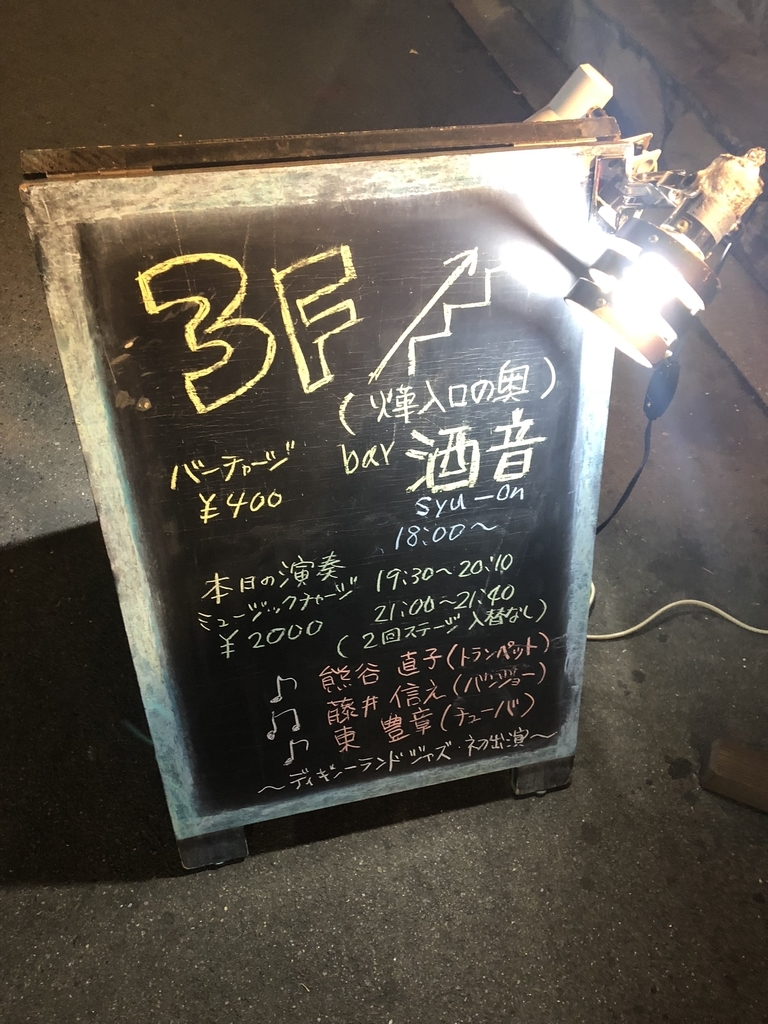 3F
(燁入口の奥)
bar 酒音
syu-on
バーチャージ
¥400
18:00~
本日の演奏
ミュージックチャージ
¥2000
19:30~20:10
21:00~21:40
(2回ステージ入替なし)
♪ 熊谷 直子(トランペット)
♫ 藤井 信え(バンジョー)
♪ 東 豊章(チューバ)
~ディキシーランドジャズ・初出演~